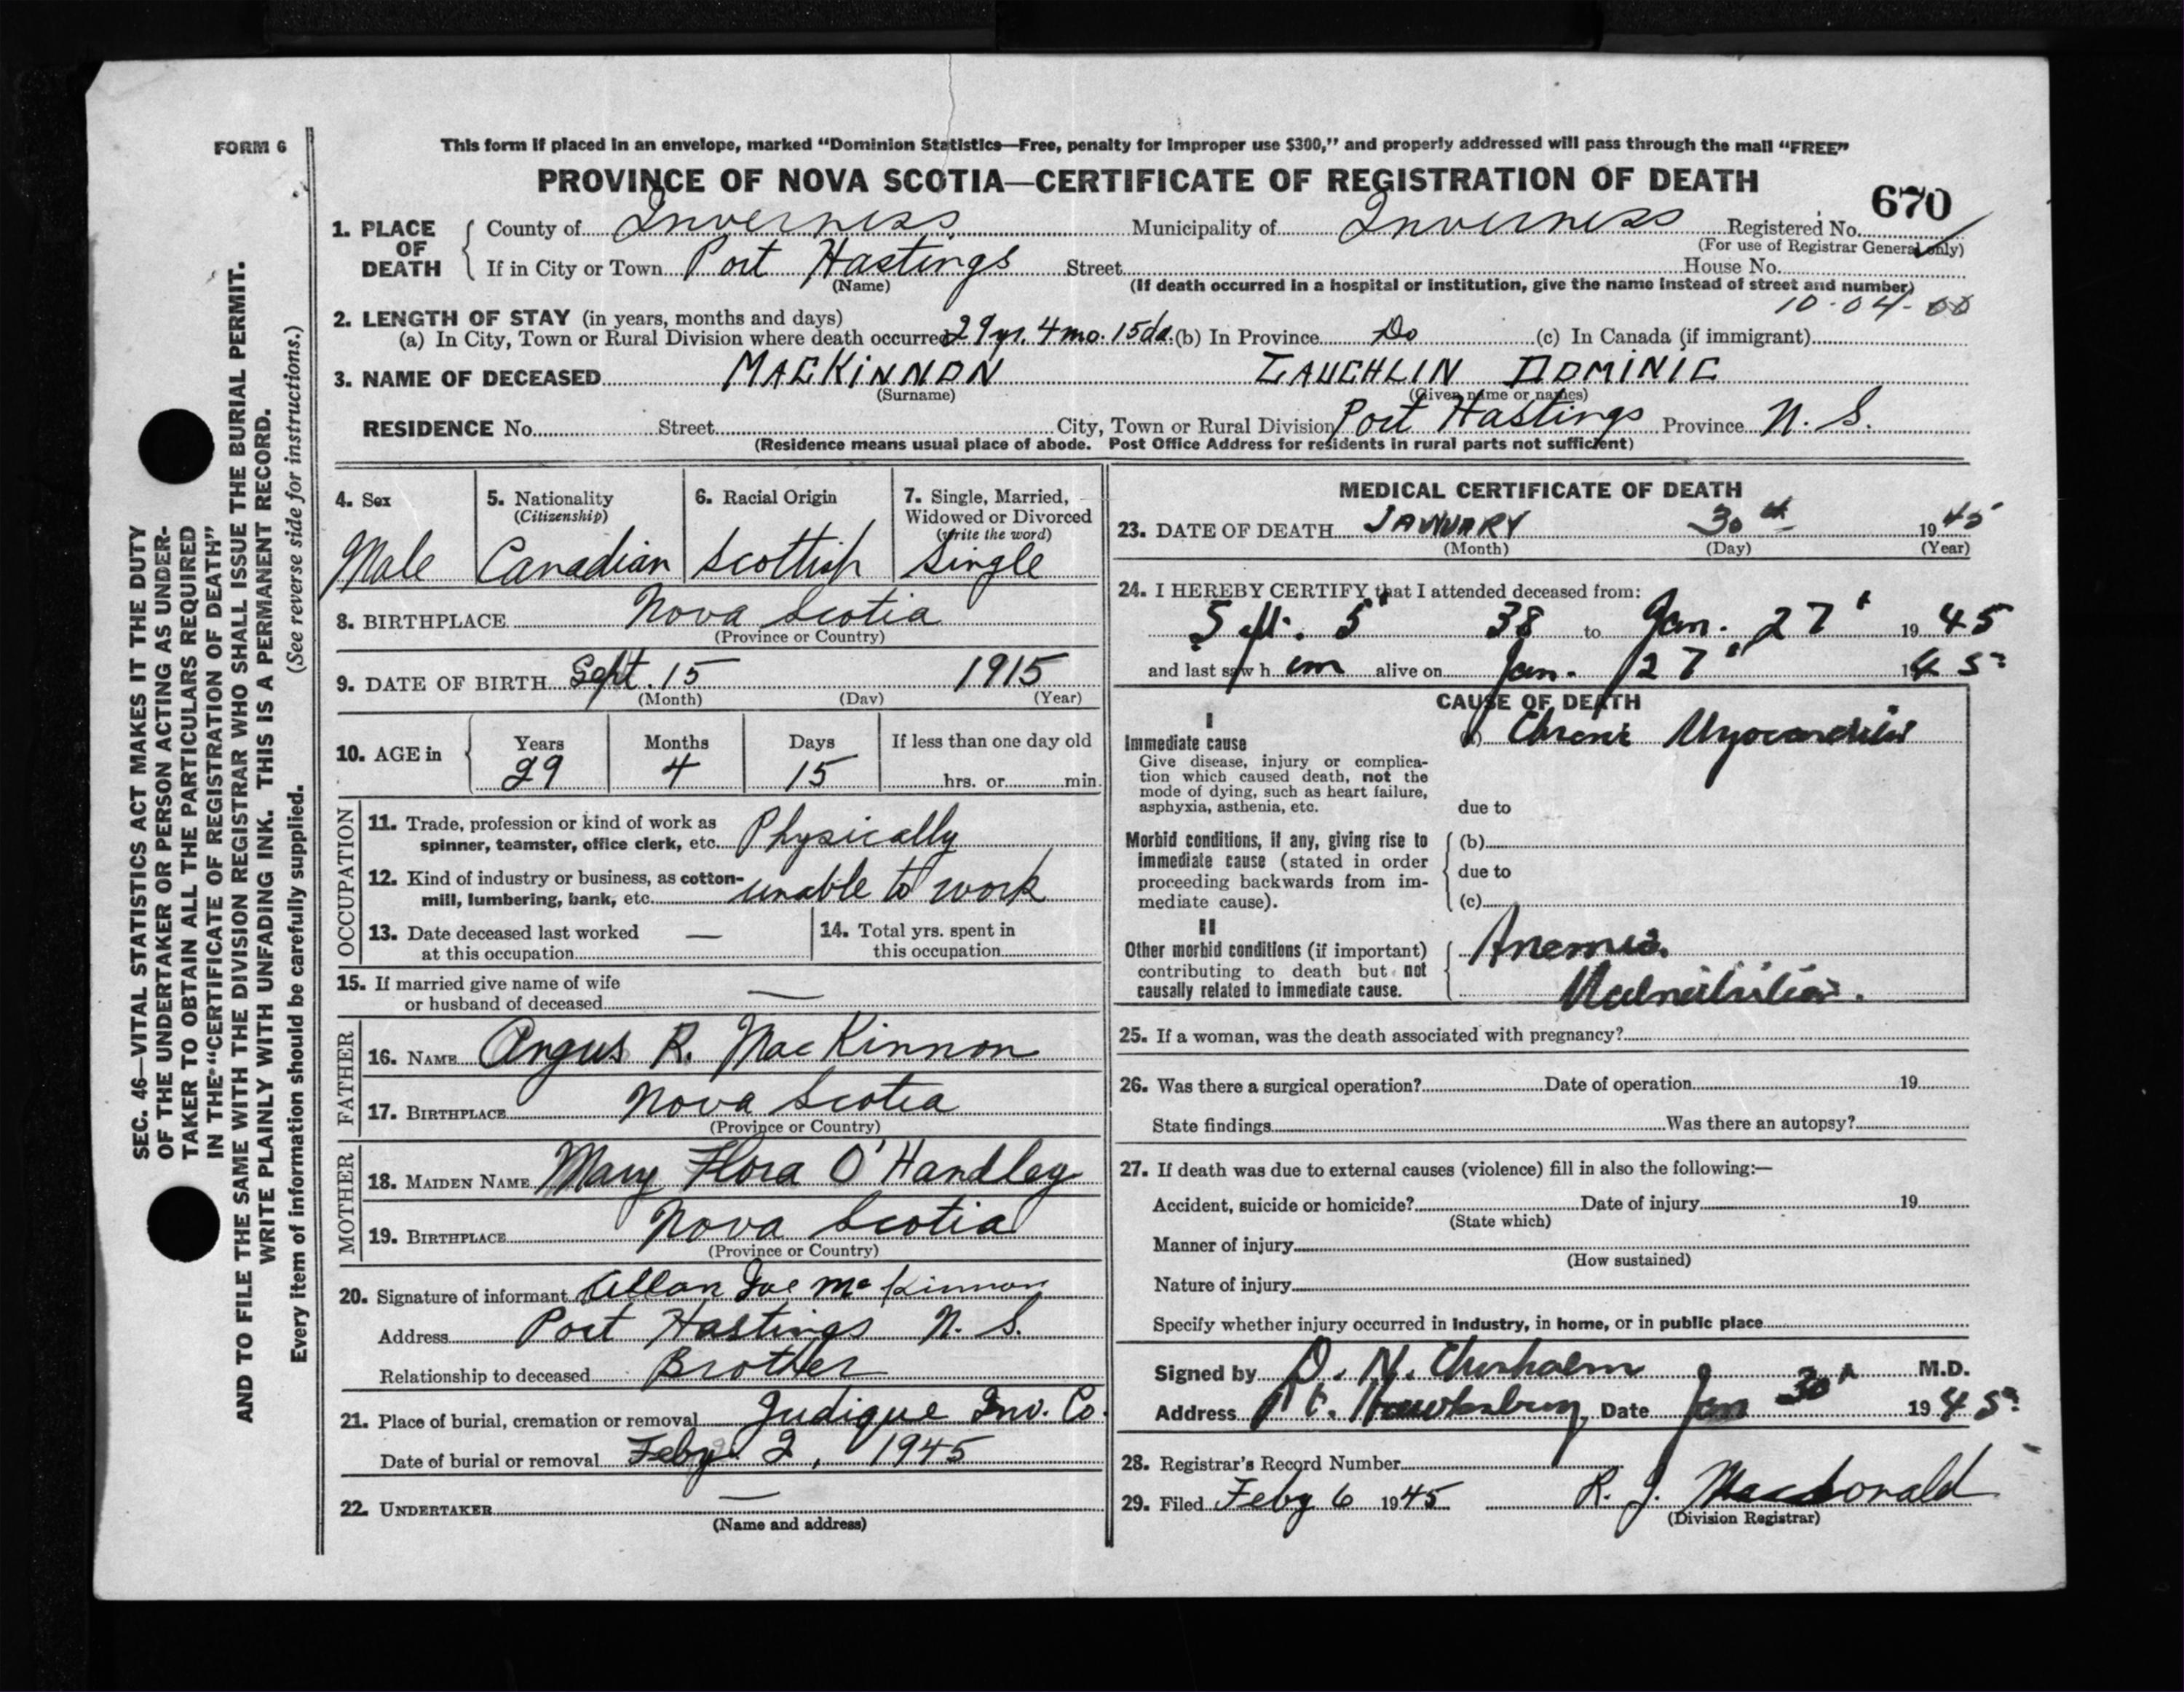 FORM 6
This form if placed in an envelope, marked "Dominion Statistics—Free, penalty for improper use $300," and properly addressed will pass through the mail "FREE"
PROVINCE OF NOVA SCOTIA—CERTIFICATE OF REGISTRATION OF DEATH
670
1. PLACE OF DEATH
County of Inverness Municipality of Inverness Registered No.
(For use of Registrar General only)
If in City or Town Port Hastings Street House No.
(Name) (If death occurred in a hospital or institution, give the name instead of street and number)
10-04-00
2. LENGTH OF STAY (in years, months and days)
(a) In City, Town or Rural Division where death occurred 29 yr. 4 mo. 15 da. (b) In Province Do (c) In Canada (if immigrant)
3. NAME OF DECEASED MACKINNON LAUCHLIN DOMINIC
(Surname) (Given name or names)
RESIDENCE No. Street City, Town or Rural Division Port Hastings Province N. S.
(Residence means usual place of abode. Post Office Address for residents in rural parts not sufficient)
4. Sex
Male
5. Nationality
(Citizenship)
Canadian
6. Racial Origin
Scottish
7. Single, Married,
Widowed or Divorced
(write the word)
Single
8. BIRTHPLACE Nova Scotia
(Province or Country)
9. DATE OF BIRTH Sept. 15 1915
(Month) (Day) (Year)
10. AGE in
Years Months Days If less than one day old
29 4 15 hrs. or min.
OCCUPATION
11. Trade, profession or kind of work as
spinner, teamster, office clerk, etc. Physically
12. Kind of industry or business, as cotton-
mill, lumbering, bank, etc. unable to work
13. Date deceased last worked —
at this occupation
14. Total yrs. spent in
this occupation
15. If married give name of wife
or husband of deceased —
FATHER
16. NAME Angus R. MacKinnon
17. BIRTHPLACE Nova Scotia
(Province or Country)
MOTHER
18. MAIDEN NAME Mary Flora O'Handley
19. BIRTHPLACE Nova Scotia
(Province or Country)
20. Signature of informant Allan Joe McKinnon
Address Port Hastings N. S.
Relationship to deceased Brother
21. Place of burial, cremation or removal Judique Inv. Co.
Date of burial or removal Feby. 2, 1945
22. UNDERTAKER —
(Name and address)
MEDICAL CERTIFICATE OF DEATH
23. DATE OF DEATH JANUARY 30th 1945
(Month) (Day) (Year)
24. I HEREBY CERTIFY that I attended deceased from:
Sept. 5 38 to Jan. 27 1945
and last saw h im alive on Jan. 27 1945
CAUSE OF DEATH
I
Immediate cause
Give disease, injury or complica-
tion which caused death, not the
mode of dying, such as heart failure,
asphyxia, asthenia, etc.
(a) Chronic Myocarditis
due to
Morbid conditions, if any, giving rise to
immediate cause (stated in order
proceeding backwards from im-
mediate cause).
(b)
due to
(c)
II
Other morbid conditions (if important)
contributing to death but not
causally related to immediate cause.
Anemia.
Malnutrition.
25. If a woman, was the death associated with pregnancy?
26. Was there a surgical operation? Date of operation 19
State findings Was there an autopsy?
27. If death was due to external causes (violence) fill in also the following:—
Accident, suicide or homicide? Date of injury 19
(State which)
Manner of injury
(How sustained)
Nature of injury
Specify whether injury occurred in industry, in home, or in public place
Signed by D. N. Chisholm M.D.
Address Pt. Hawkesbury Date Jan 30 1945
28. Registrar's Record Number
29. Filed Feby 6 1945 R. J. Macdonald
(Division Registrar)
SEC. 46—VITAL STATISTICS ACT MAKES IT THE DUTY
OF THE UNDERTAKER OR PERSON ACTING AS UNDER-
TAKER TO OBTAIN ALL THE PARTICULARS REQUIRED
IN THE "CERTIFICATE OF REGISTRATION OF DEATH"
AND TO FILE THE SAME WITH THE DIVISION REGISTRAR WHO SHALL ISSUE THE BURIAL PERMIT.
WRITE PLAINLY WITH UNFADING INK. THIS IS A PERMANENT RECORD.
Every item of information should be carefully supplied. (See reverse side for instructions.)